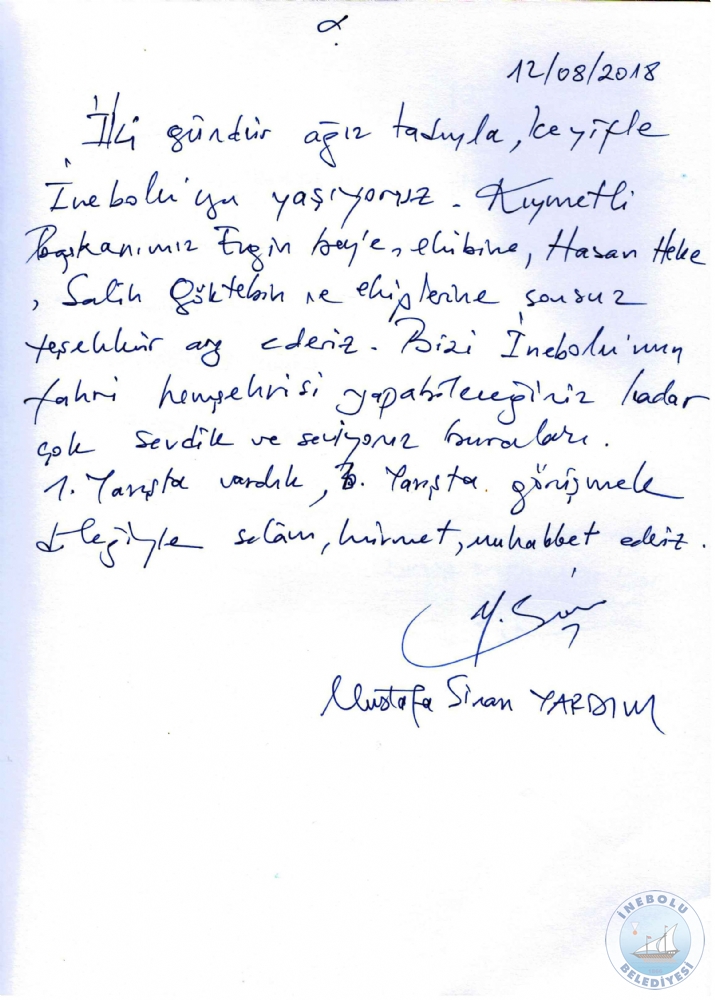 12/08/2018
İki gündür ağız tadıyla, keyifle
İnebolu'yu yaşıyoruz. Kıymetli
Başkanımız Engin bey'e, ekibine, Hasan Heke
, Salih Göktebin ve ekiplerine sonsuz
teşekkür arz ederiz. Bizi İnebolu'nun
fahri hemşehrisi yapabileceğiniz kadar
çok sevdik ve seviyoruz buraları.
1. Yarışta vardık, . Yarışta görüşmek
dileğiyle selâm, hürmet, muhabbet ederiz.
Mustafa Sinan YARDIM
İNEBOLU
BELEDİYESİ